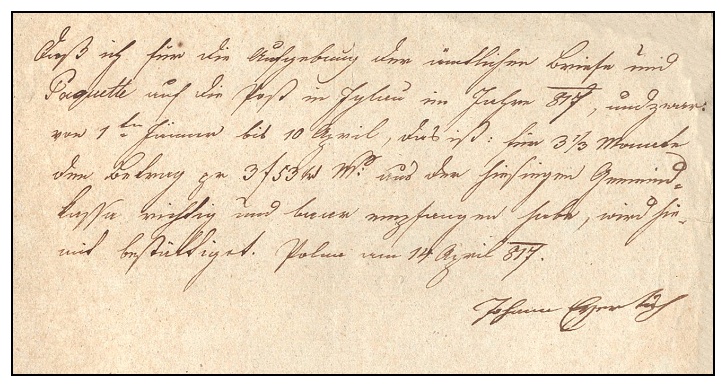 Daß ich für die Aufgebung der ämtlichen Briefe und
Paquette auf die Post in Iglau im Jahre 817, und zwar:
von 1ten Jänner bis 10 April, das ist: für 3 1/3 Monate
den Betrag pr 3 f 53 xr aus der hiesigen Gemeind-
kassa richtig und baar empfangen habe, wird hie-
mit bestättiget. Polna am 14 April 817.
Johann